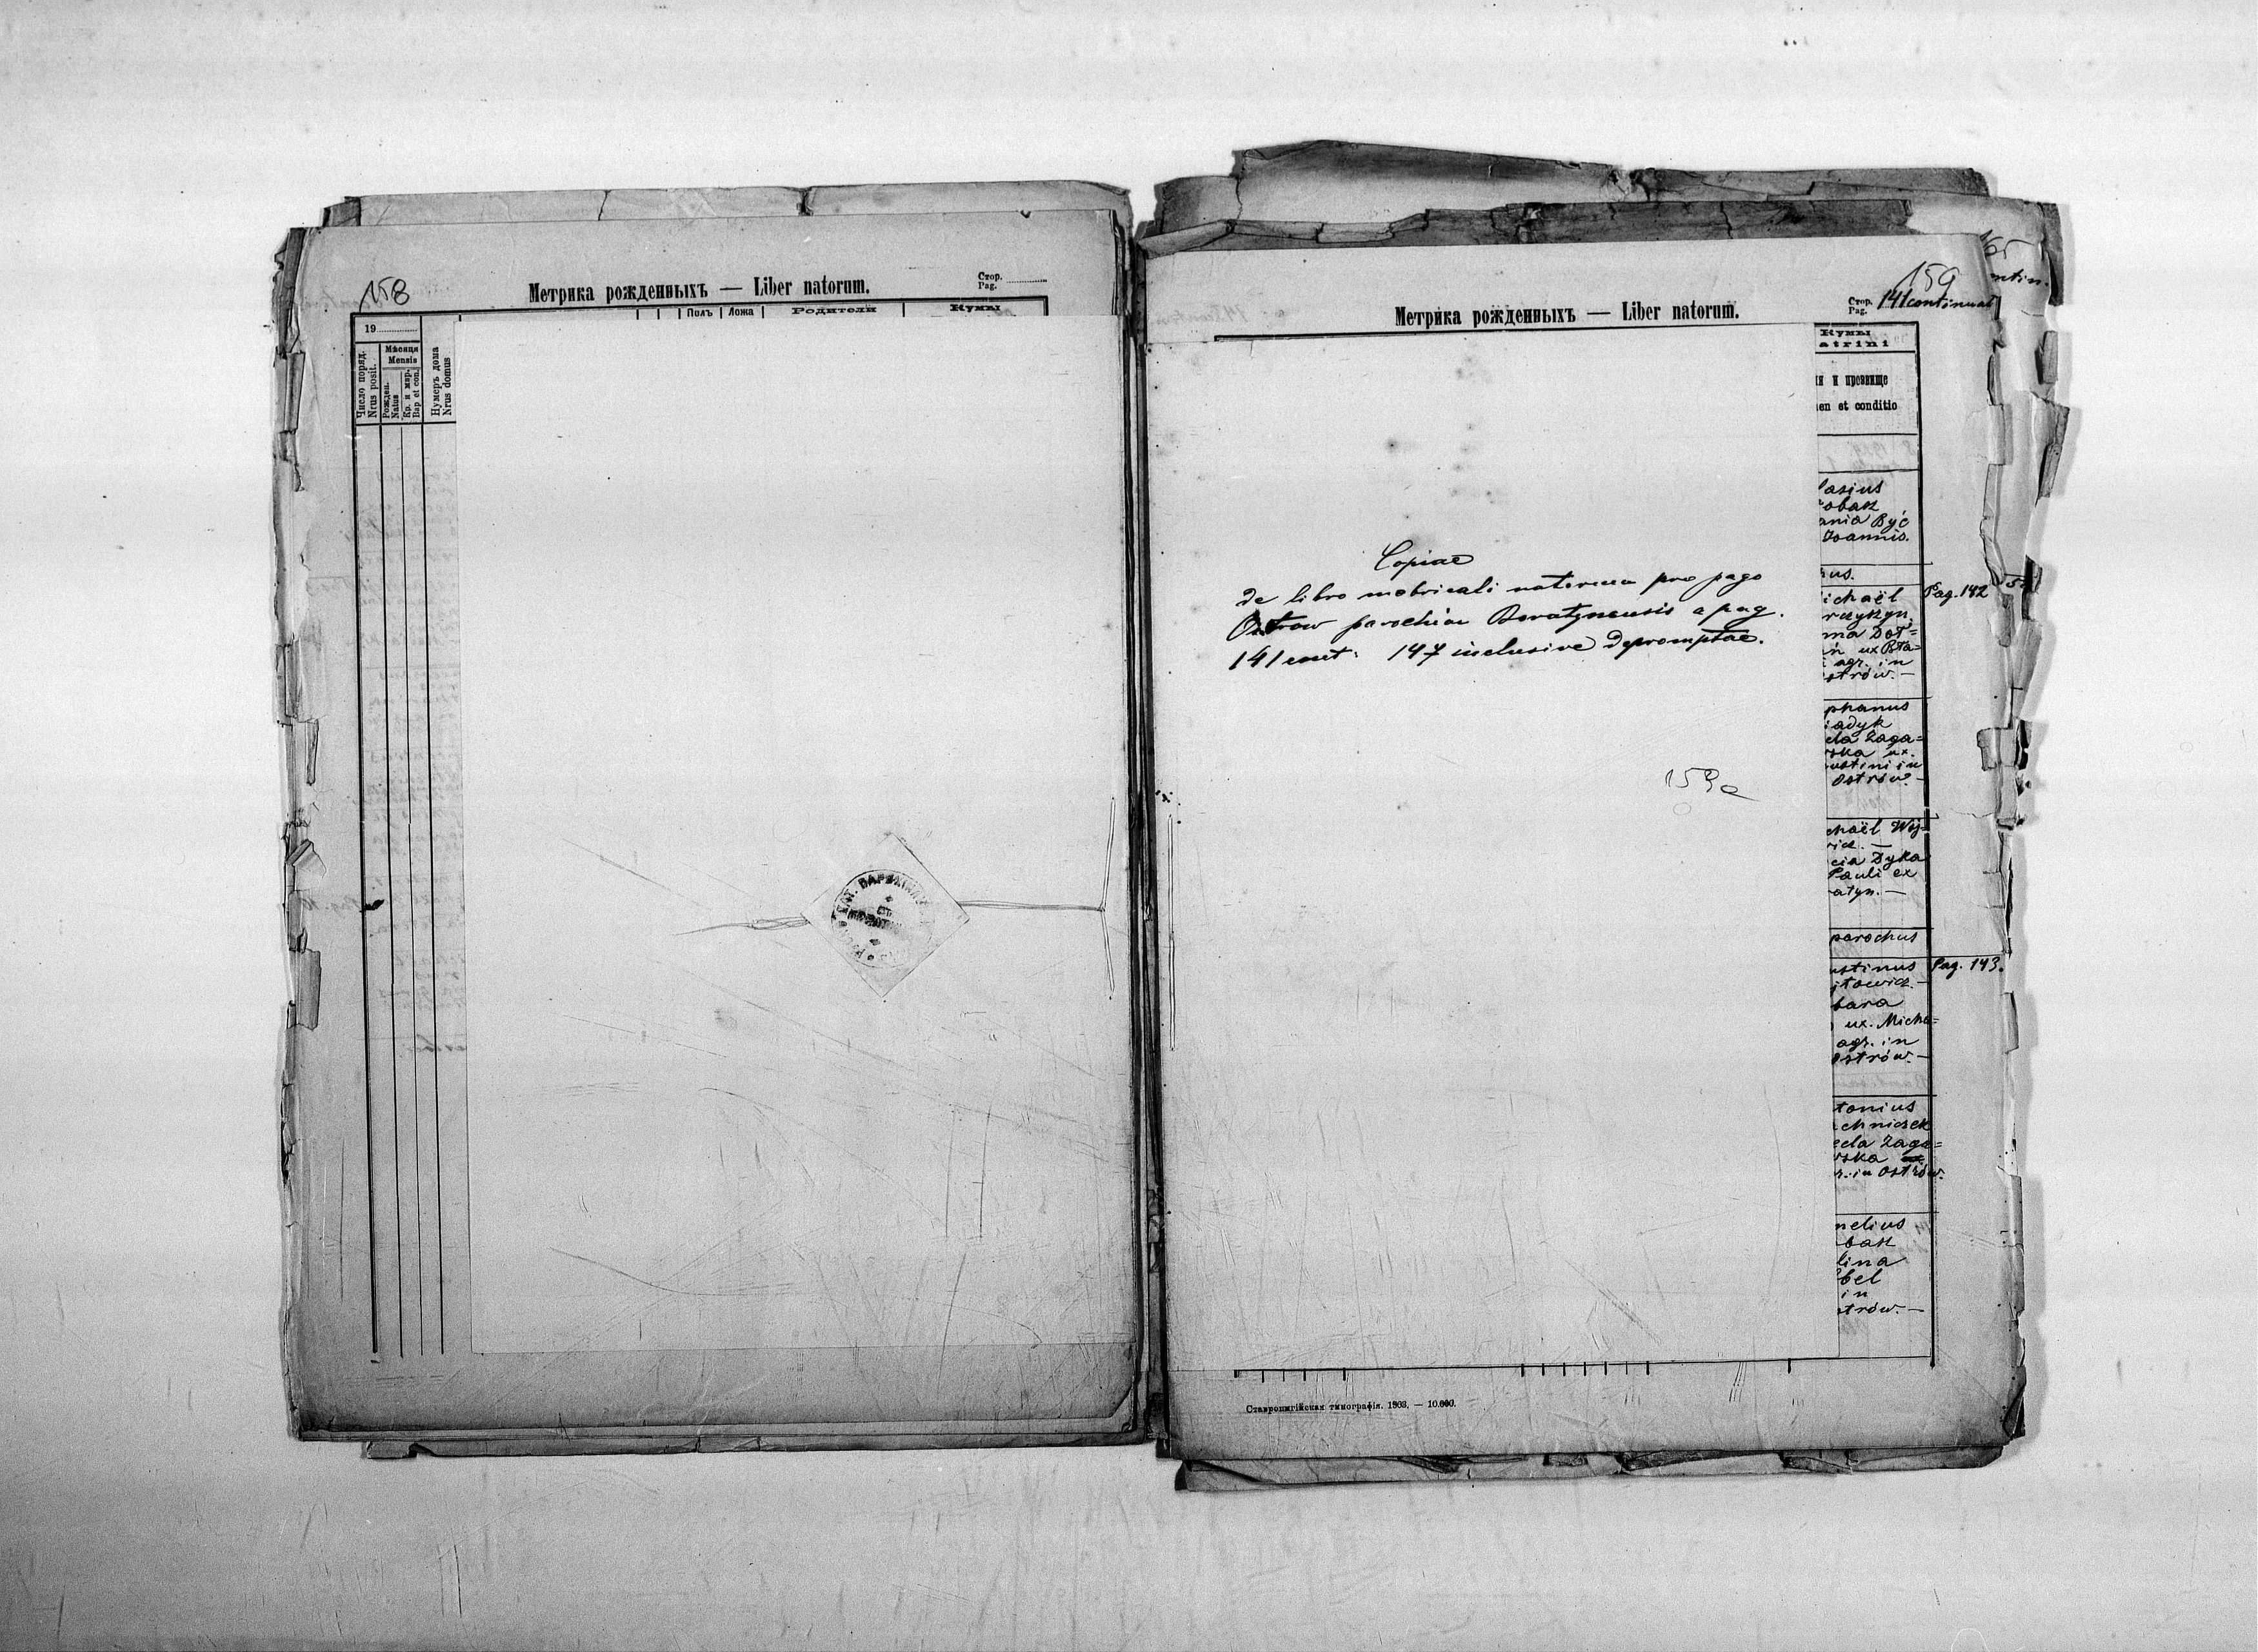 158
Метрика рожденныхъ — Liber natorum.
Стор.
Pag.
19
Число поряд.
Nrus posit.
Мѣсяця
Mensis
Рожден.
Natus
Кр. и мвр.
Bap et con.
Нумеръ дома
Nrus domus
Полъ
Ложа
Родители
Кумы
159
Метрика рожденныхъ — Liber natorum.
Стор.
Pag.
141 continuat
Кумы
atrini
я и прозвище
en et conditio
Copiae
de libro metricali natorum pro pago
Ostrow parochiae Boratynensis a pag.
141 cont: 147 inclusive depromptae.
159a
lasius
obak
ania Być
Joannis.
us.
ichaël
Pag. 142
ma Dot=
n ux Bła=
agr. in
strów. —
phanus
iadyk
ela Zaga=
rska ux.
ustini in
Ostrów. —
chaël Woj=
cia Dyka
Pauli ex
atyn. —
parochus
ustinus
Pag. 143.
jtowicz. —
bara
ux. Micha=
agr. in
Ostrów. —
tonius
chniczek
ecla Zaga=
rska
r. in Ostrów.
nelius
bak
lina
bel
in
strów. —
Ставропигійская типографія. 1903. — 10.000.